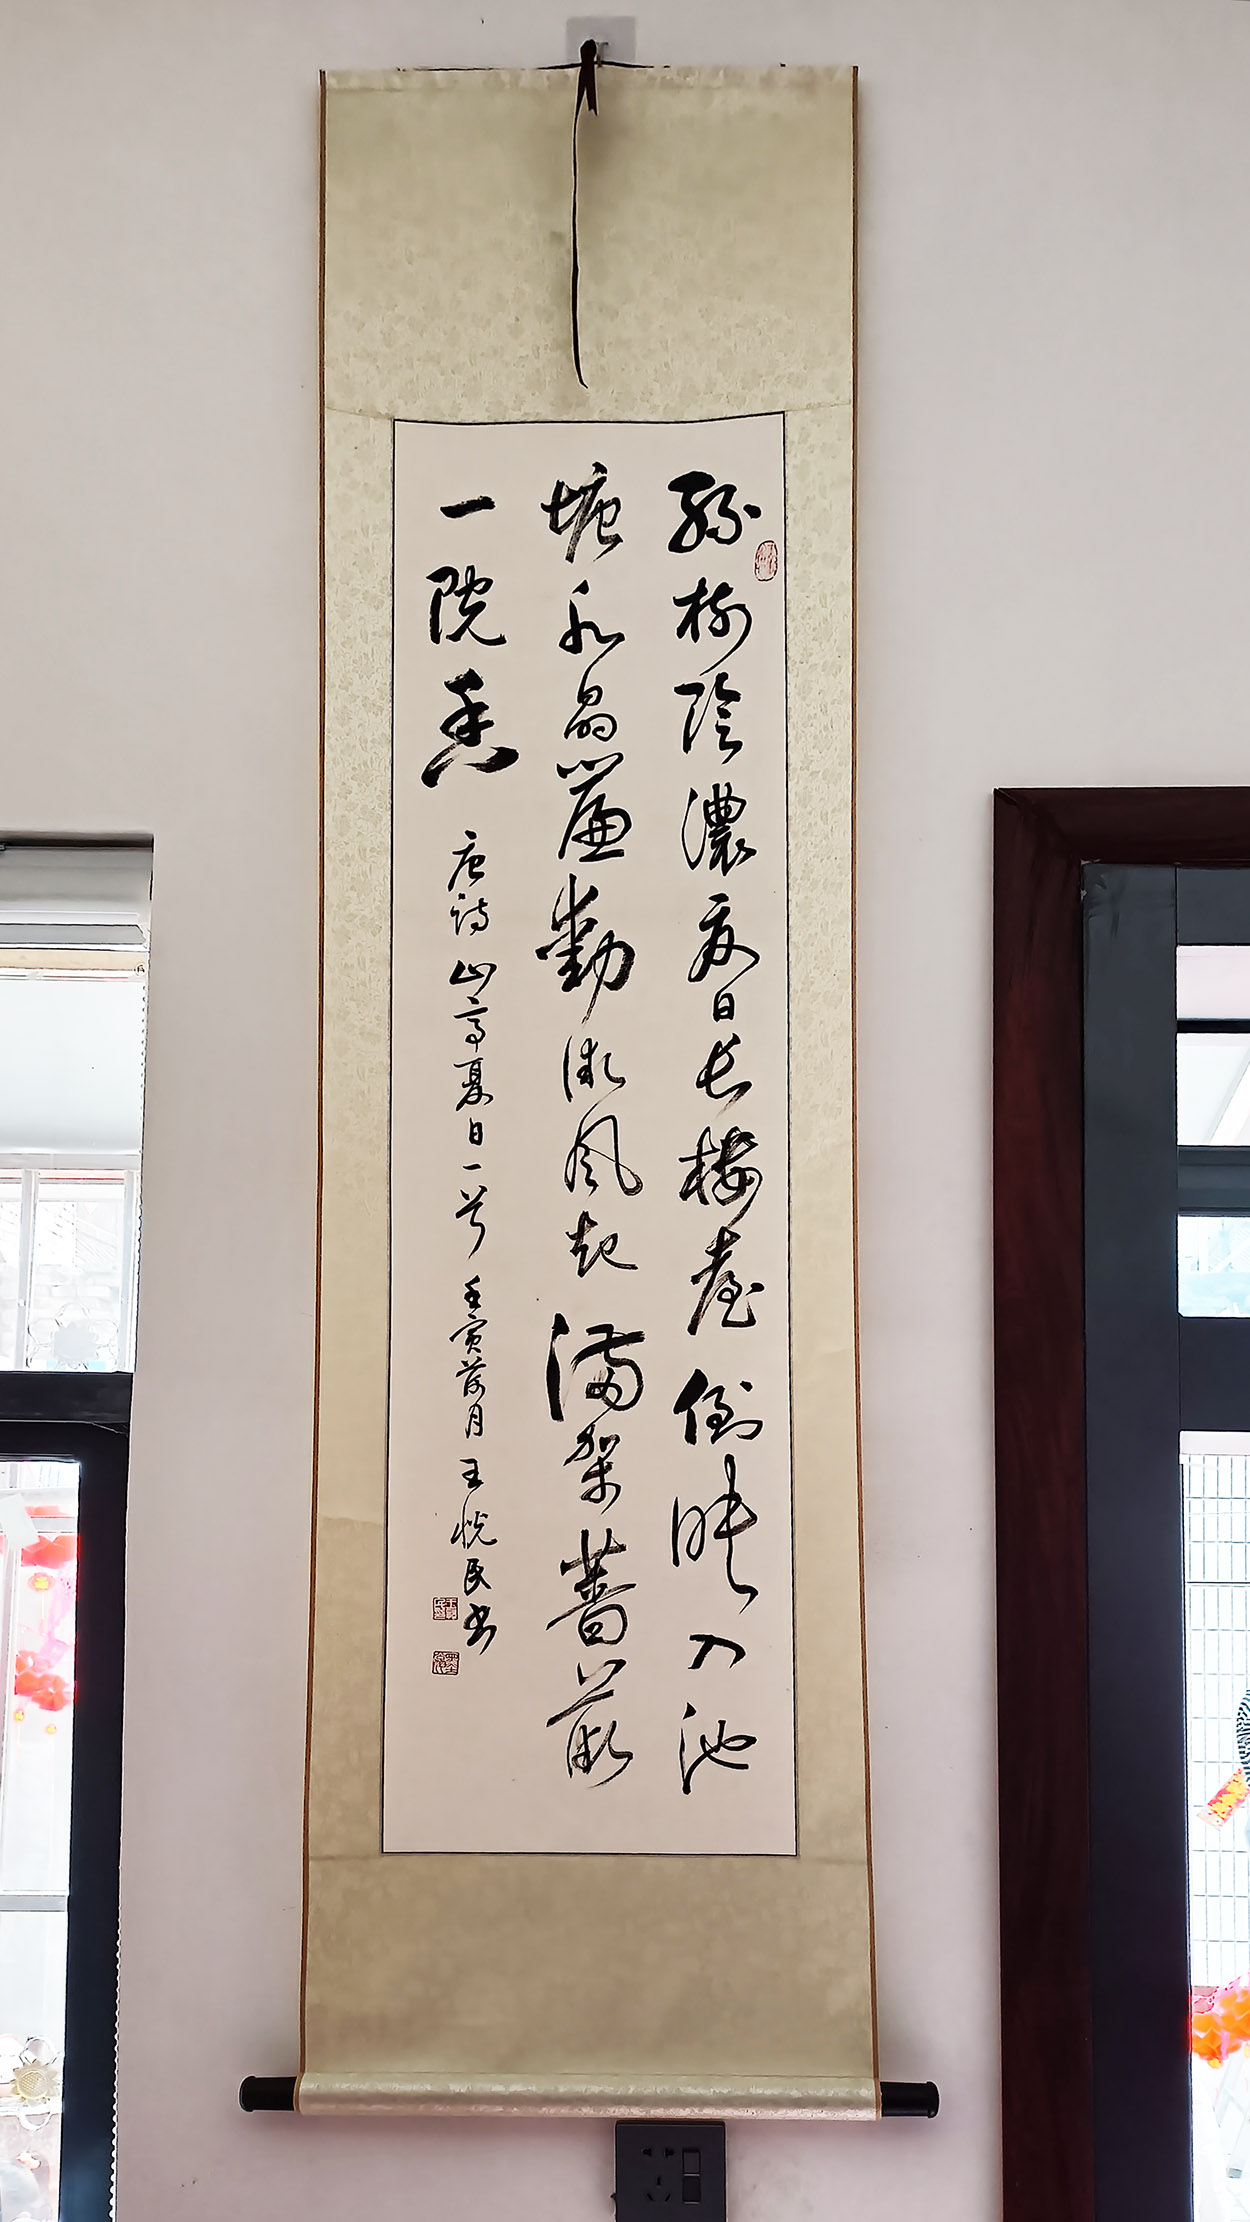 绿树阴浓夏日长楼台倒映入池
塘水晶簾動微风起满架蔷薇
一院香
唐诗山亭夏日一首 壬寅荷月 王悦民书